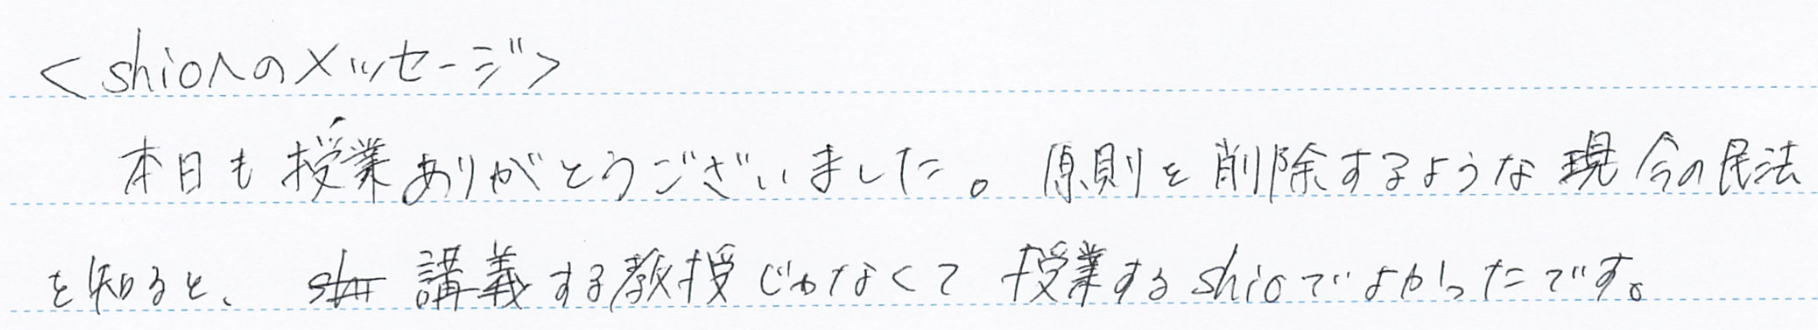 <shioへのメッセージ>
本日も授業ありがとうございました。原則を削除するような現今の民法
を知ると、講義する教授じゃなくて授業するshioでよかったです。